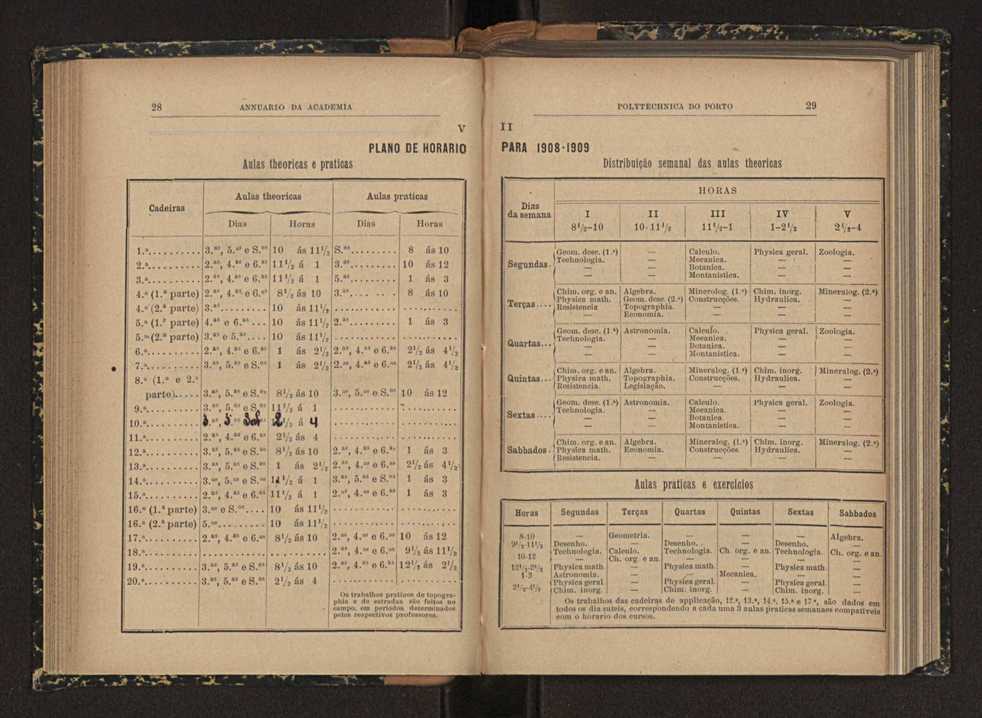 28 ANNUARIO DA ACADEMIA
V
PLANO DE HORARIO
Aulas theoricas e praticas
Cadeiras Aulas theoricas Aulas praticas
Dias Horas Dias Horas
1.ª 3.as, 5.as e S.os 10 ás 11½ S.os 8 ás 10
2.ª 2.as, 4.as e 6.as 11½ á 1 3.as 10 ás 12
3.ª 2.as, 4.as e 6.as 11½ á 1 5.as 1 ás 3
4.ª (1.ª parte) 2.as, 4.as e 6.as 8½ ás 10 3.as 8 ás 10
4.ª (2.ª parte) 3.as 10 ás 11½
5.ª (1.ª parte) 4.as e 6.as 10 ás 11½ 2.as 1 ás 3
5.ª (2.ª parte) 3.as e 5.as 10 ás 11½
6.ª 2.as, 4.as e 6.as 1 ás 2½ 2.as, 4.as e 6.as 2½ ás 4½
7.ª 3.as, 5.as e S.os 1 ás 2½ 2.as, 4.as e 6.as 2½ ás 4½
8.ª (1.ª e 2.ª
parte) 3.as, 5.as e S.os 8½ ás 10 3.as, 5.as e S.os 10 ás 12
9.ª 3.as, 5.as e S.os 11½ á 1
10.ª 3.as, 5.as 2 á 4
11.ª 2.as, 4.as e 6.as 2½ ás 4
12.ª 3.as, 5.as e S.os 8½ ás 10 2.as, 4.as e 6.as 1 ás 3
13.ª 3.as, 5.as e S.os 1 ás 2½ 2.as, 4.as e 6.as 2½ ás 4½
14.ª 3.as, 5.as e S.os 11½ á 1 3.as, 5.as e S.os 1 ás 3
15.ª 2.as, 4.as e 6.as 11½ á 1 2.as, 4.as e 6.as 1 ás 3
16.ª (1.ª parte) 3.as e S.os 10 ás 11½
16.ª (2.ª parte) 5.as 10 ás 11½
17.ª 2.as, 4.as e 6.as 8½ ás 10 2.as, 4.as e 6.as 10 ás 12
18.ª 2.as, 4.as e 6.as 9½ ás 11½
19.ª 3.as, 5.as e S.os 8½ ás 10 2.as, 4.as e 6.as 12½ ás 2½
20.ª 3.as, 5.as e S.os 2½ ás 4
Os trabalhos praticos de topogra-
phia e de estradas são feitos no
campo, em periodos determinados
pelos respectivos professores.
POLYTECHNICA DO PORTO 29
II
PARA 1908-1909
Distribuição semanal das aulas theoricas
Dias da semana HORAS
I II III IV V
8½-10 10-11½ 11½-1 1-2½ 2½-4
Geom. desc. (1.ª) — Calculo. Physica geral. Zoologia.
Segundas. Technologia. — Mecanica. — —
— — Botanica. — —
— — Montanistica. — —
Chim. org. e an. Algebra. Minerolog. (1.ª) Chim. inorg. Mineralog. (2.ª)
Terças Physica math. Geom. desc. (2.ª) Construcções. Hydraulica. —
Resistencia Topographia — — —
— Economia. — — —
Geom. desc. (1.ª) Astronomia. Calculo. Physica geral. Zoologia.
Quartas Technologia. — Mecanica. — —
— — Botanica. — —
— — Montanistica. — —
Chim. org. e an. Algebra. Mineralog. (1.ª) Chim. inorg. Mineralog. (2.ª)
Quintas Physica math. Topographia. Construcções. Hydraulica. —
Resistencia. Legislação. — — —
Geom. desc. (1.ª) Astronomia. Calculo. Physica geral. Zoologia.
Sextas Technologia. — Mecanica. — —
— — Botanica. — —
— — Montanistica. — —
Chim. org. e an. Algebra. Minerolog. (1.ª) Chim. inorg. Mineralog. (2.ª)
Sabbados Physica math. Economia. Construcções Hydraulica. —
Resistencia. — — — —
Aulas praticas e exercicios
Horas Segundas Terças Quartas Quintas Sextas Sabbados
8-10 — Geometria. — — — Algebra.
9½-11½ Desenho. — Desenho. — Desenho. —
10-12 Technologia. Calculo. Technologia. Ch. org. e an. Technologia. Ch. org. e an.
— Ch. org. e an. — — — —
12½-2½ Physica math. — Physica math. — Physica math. —
1-3 Astronomia. — — Mecanica. — —
2½-4½ Physica geral — Physica geral. — Physica geral. —
Chim. inorg. — Chim. inorg. — Chim. inorg. —
Os trabalhos das cadeiras de applicação, 12.ª, 13.ª, 14.ª, 15.ª e 17.ª, são dados em
todos os dia suteis, correspondendo a cada uma 3 aulas praticas semanaes compativeis
com o horario dos cursos.